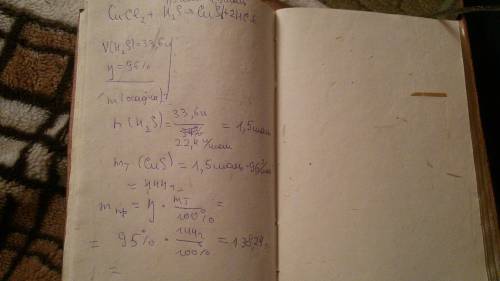 CuCl₂ + H₂S = CuS↓ + 2HCl
V(H₂S) = 33,6л
η = 95%
m(осадка) - ?
n(H₂S) = 33,6л / 22,4 л/моль = 1,5моль
mт (CuS) = 1,5моль · 96г/моль
= 144г
mпр = η · mт / 100% =
= 95% · 144г / 100% = 136,8г
=